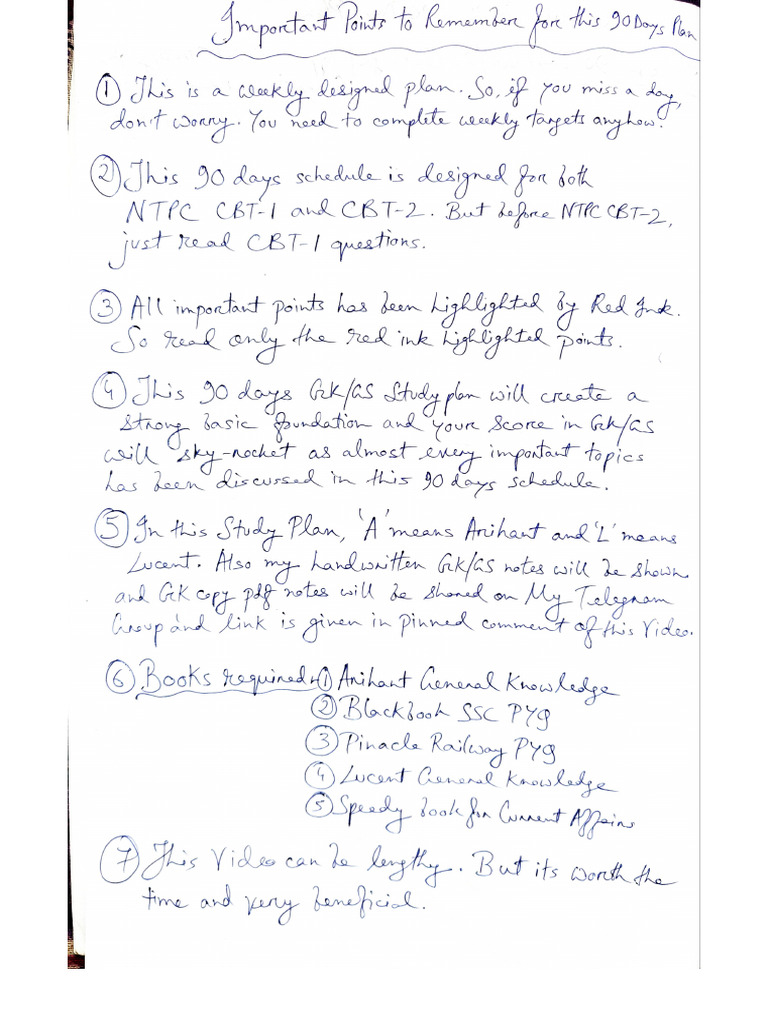 Important Points to Remember for this 90 Days Plan
① This is a weekly designed plan. So, if you miss a day,
don't worry. You need to complete weekly targets anyhow.
② This 90 days schedule is designed for both
NTPC CBT-1 and CBT-2. But before NTPC CBT-2,
just read CBT-1 questions.
③ All important points has been highlighted by Red Ink.
So read only the red ink highlighted points.
④ This 90 days GK/GS Study plan will create a
strong basic foundation and your score in GK/GS
will sky-rocket as almost every important topics
has been discussed in this 90 days schedule.
⑤ In this Study Plan, 'A' means Arihant and 'L' means
Lucent. Also my handwritten GK/GS notes will be shown
and GK copy pdf notes will be shared on My Telegram
Group and link is given in pinned comment of this Video.
⑥ Books required:- ① Arihant General Knowledge
② Blackbook SSC PYQ
③ Pinacle Railway PYQ
④ Lucent General Knowledge
⑤ Speedy book for Current Affairs
⑦ This Video can be lengthy. But its worth the
time and very beneficial.